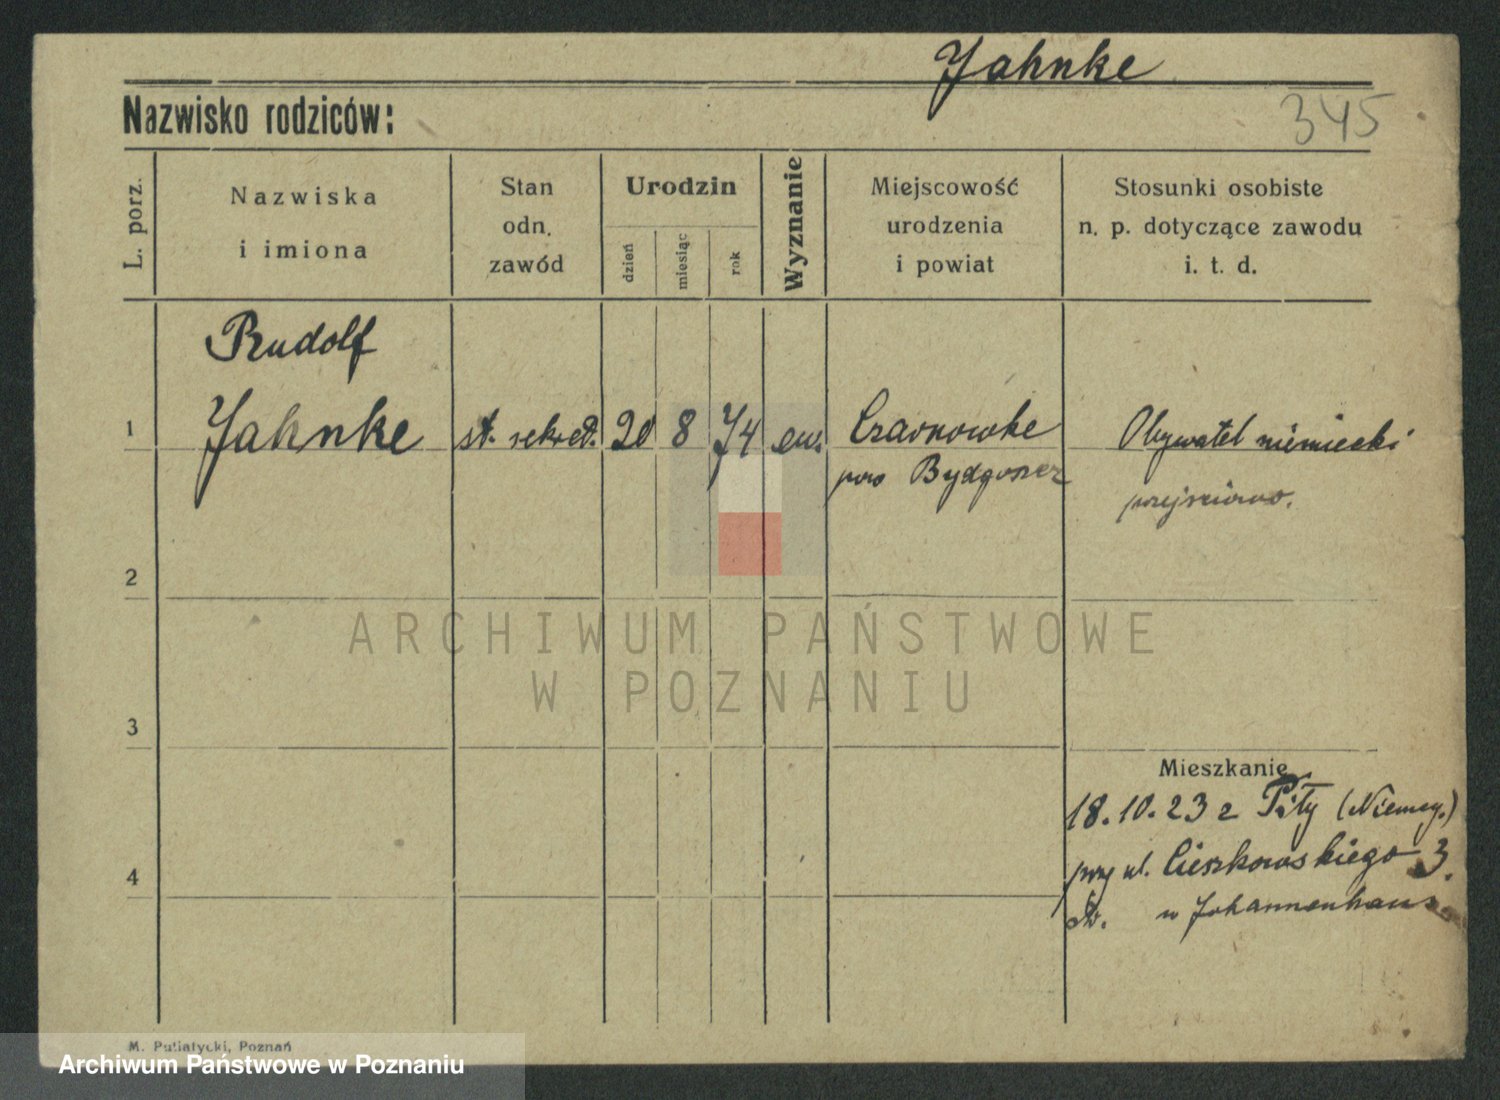 Jahnke
345
Nazwisko rodziców:
L. porz.
Nazwiska
i imiona
Stan
odn.
zawód
Urodzin
dzień
miesiąc
rok
Wyznanie
Miejscowość
urodzenia
i powiat
Stosunki osobiste
n. p. dotyczące zawodu
i. t. d.
Rudolf
1 Jahnke st. sekret. 20 8 74 ew. Czarnowke Obywatel niemiecki
pow Bydgoszcz przejściowo.
2
ARCHIWUM PAŃSTWOWE
W POZNANIU
3
Mieszkanie
18.10.23 z Piły (Niemcy.)
przy ul. Cieszkowskiego 3.
w Johannenhaus
4
M. Putiatycki, Poznań
Archiwum Państwowe w Poznaniu